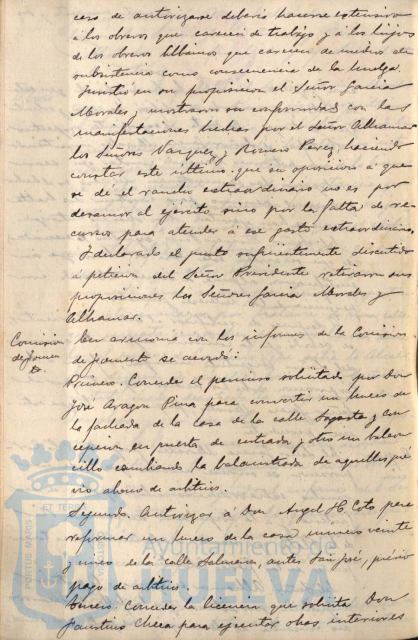 caso de autorizarse deberia hacerse extensivo
á los obreros que carecen de trabajo y á los hijos
de los obreros que carecen de medios de
subsistencia como consecuencia de la huelga.
Insistió en su proposicion el Señor Garcia
Morales y mostraron su conformidad con las
manifestaciones hechas por el Señor Alhamar
los Señores Vazquez y Romero Perez haciendo
constar este ultimo que su oposicion á que
se dé el rancho extraordinario no es por
desamor al ejército sino por la falta de re-
cursos para atender á ese gasto extraordinario.
Y declarado el punto suficientemente discutido
á peticion del Señor Presidente retiraron sus
proposiciones los Señores Garcia Morales y
Alhamar.
Comision
de Fomen
to.
En armonia con los informes de la Comision
de Fomento se acordó:
Primero. Conceder el permiso solicitado por Don
José Aragon Pina para convertir un hueco de
la fachada de la casa de la calle Sagasta y Con
cepcion en puerta de entrada y otro en balcon
cillo cambiando la balaustrada de aquellos, pré
vio abono de arbitrios.
Segundo. Autorizar á Don Angel H. Coto para
reformar un hueco de la casa número veinte
y cinco de la calle antes San José, prévio
pago de arbitrios.
Tercero. Conceder la licencia que solicita Don
Faustino Checa para ejecutar obras interiores
PORTUS MARIS
ET TERRAE
Ayuntamiento de
HUELVA